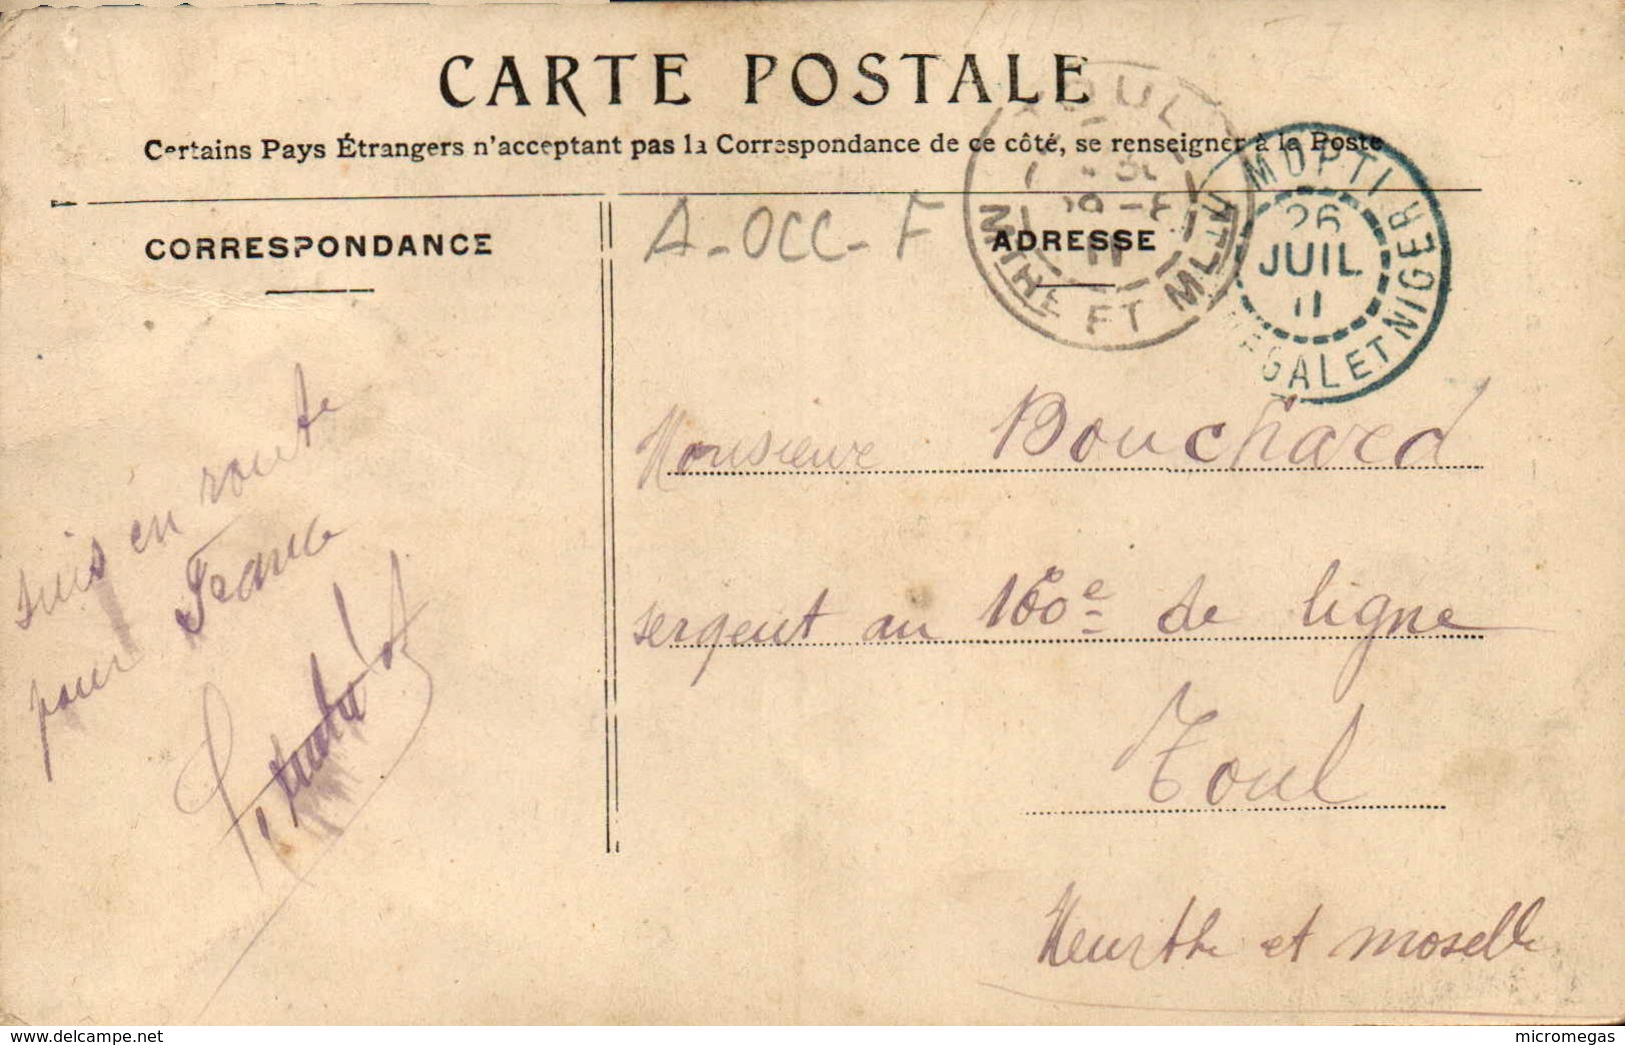 CARTE POSTALE
Certains Pays Étrangers n'acceptant pas la Correspondance de ce côté, se renseigner à la Poste
CORRESPONDANCE
A-OCC-F
ADRESSE
TOUL
MTHE ET M
MOPTI
26
JUIL
11
GAL ET NIGER
suis en route
pour France
Monsieur Bouchard
sergent au 160e de ligne
Toul
Meurthe et moselle
delcampe.net
micromegas